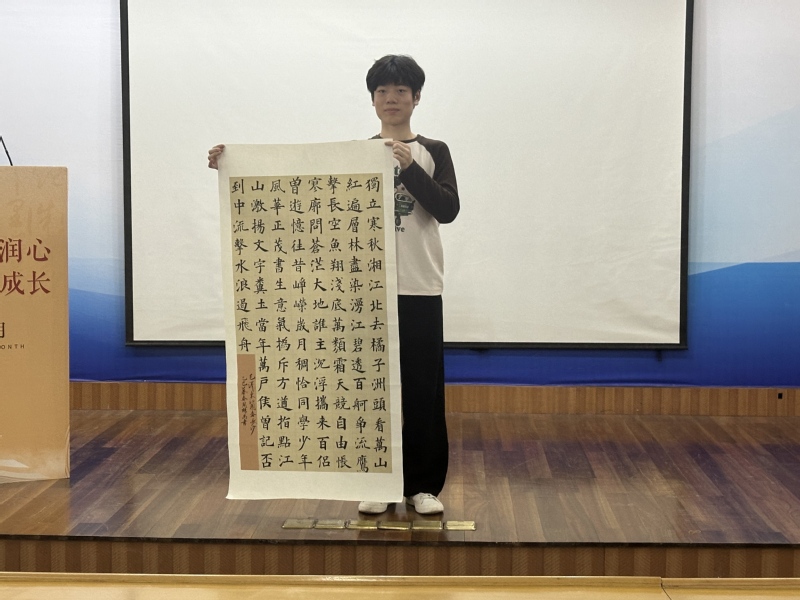 獨立寒秋湘江北去橘子洲頭看萬山
紅遍層林盡染漫江碧透百舸爭流鷹
擊長空魚翔淺底萬類霜天競自由悵
寥廓問蒼茫大地誰主沉浮攜來百侶
曾遊憶往昔崢嶸歲月稠恰同學少年
風華正茂書生意氣揮斥方遒指點江
山激揚文字糞土當年萬戶侯曾記否
到中流擊水浪遏飛舟
毛澤東沁園春長沙
润心
成长
月
ONTH